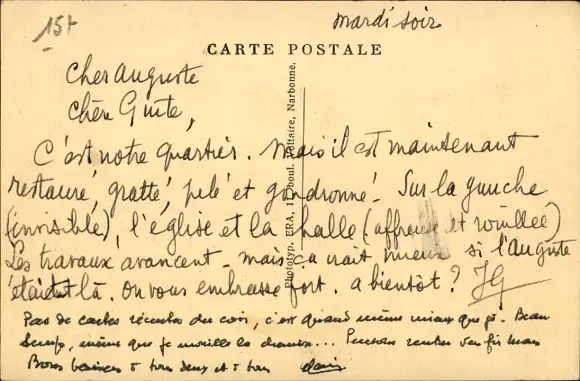 mardi soir
15f
CARTE POSTALE
Cher Auguste
Chère Guite,
C'est notre quartier. Mais il est maintenant
restauré, gratté, pelé et goudronné. Sur la gauche
(invisible), l'église et la halle (affreuse et rouillée)
Les travaux avancent - mais ça irait mieux si l'Auguste
était là. On vous embrasse fort. a bientôt ? JG
Pas de cartes récentes du coin, c'est quand même mieux que ça. Beau
temps, même que je mouille la chemise... fin mai
Bons baisers à tous deux et à tous
Phototyp. ERA, 11, boul. Voltaire, Narbonne.